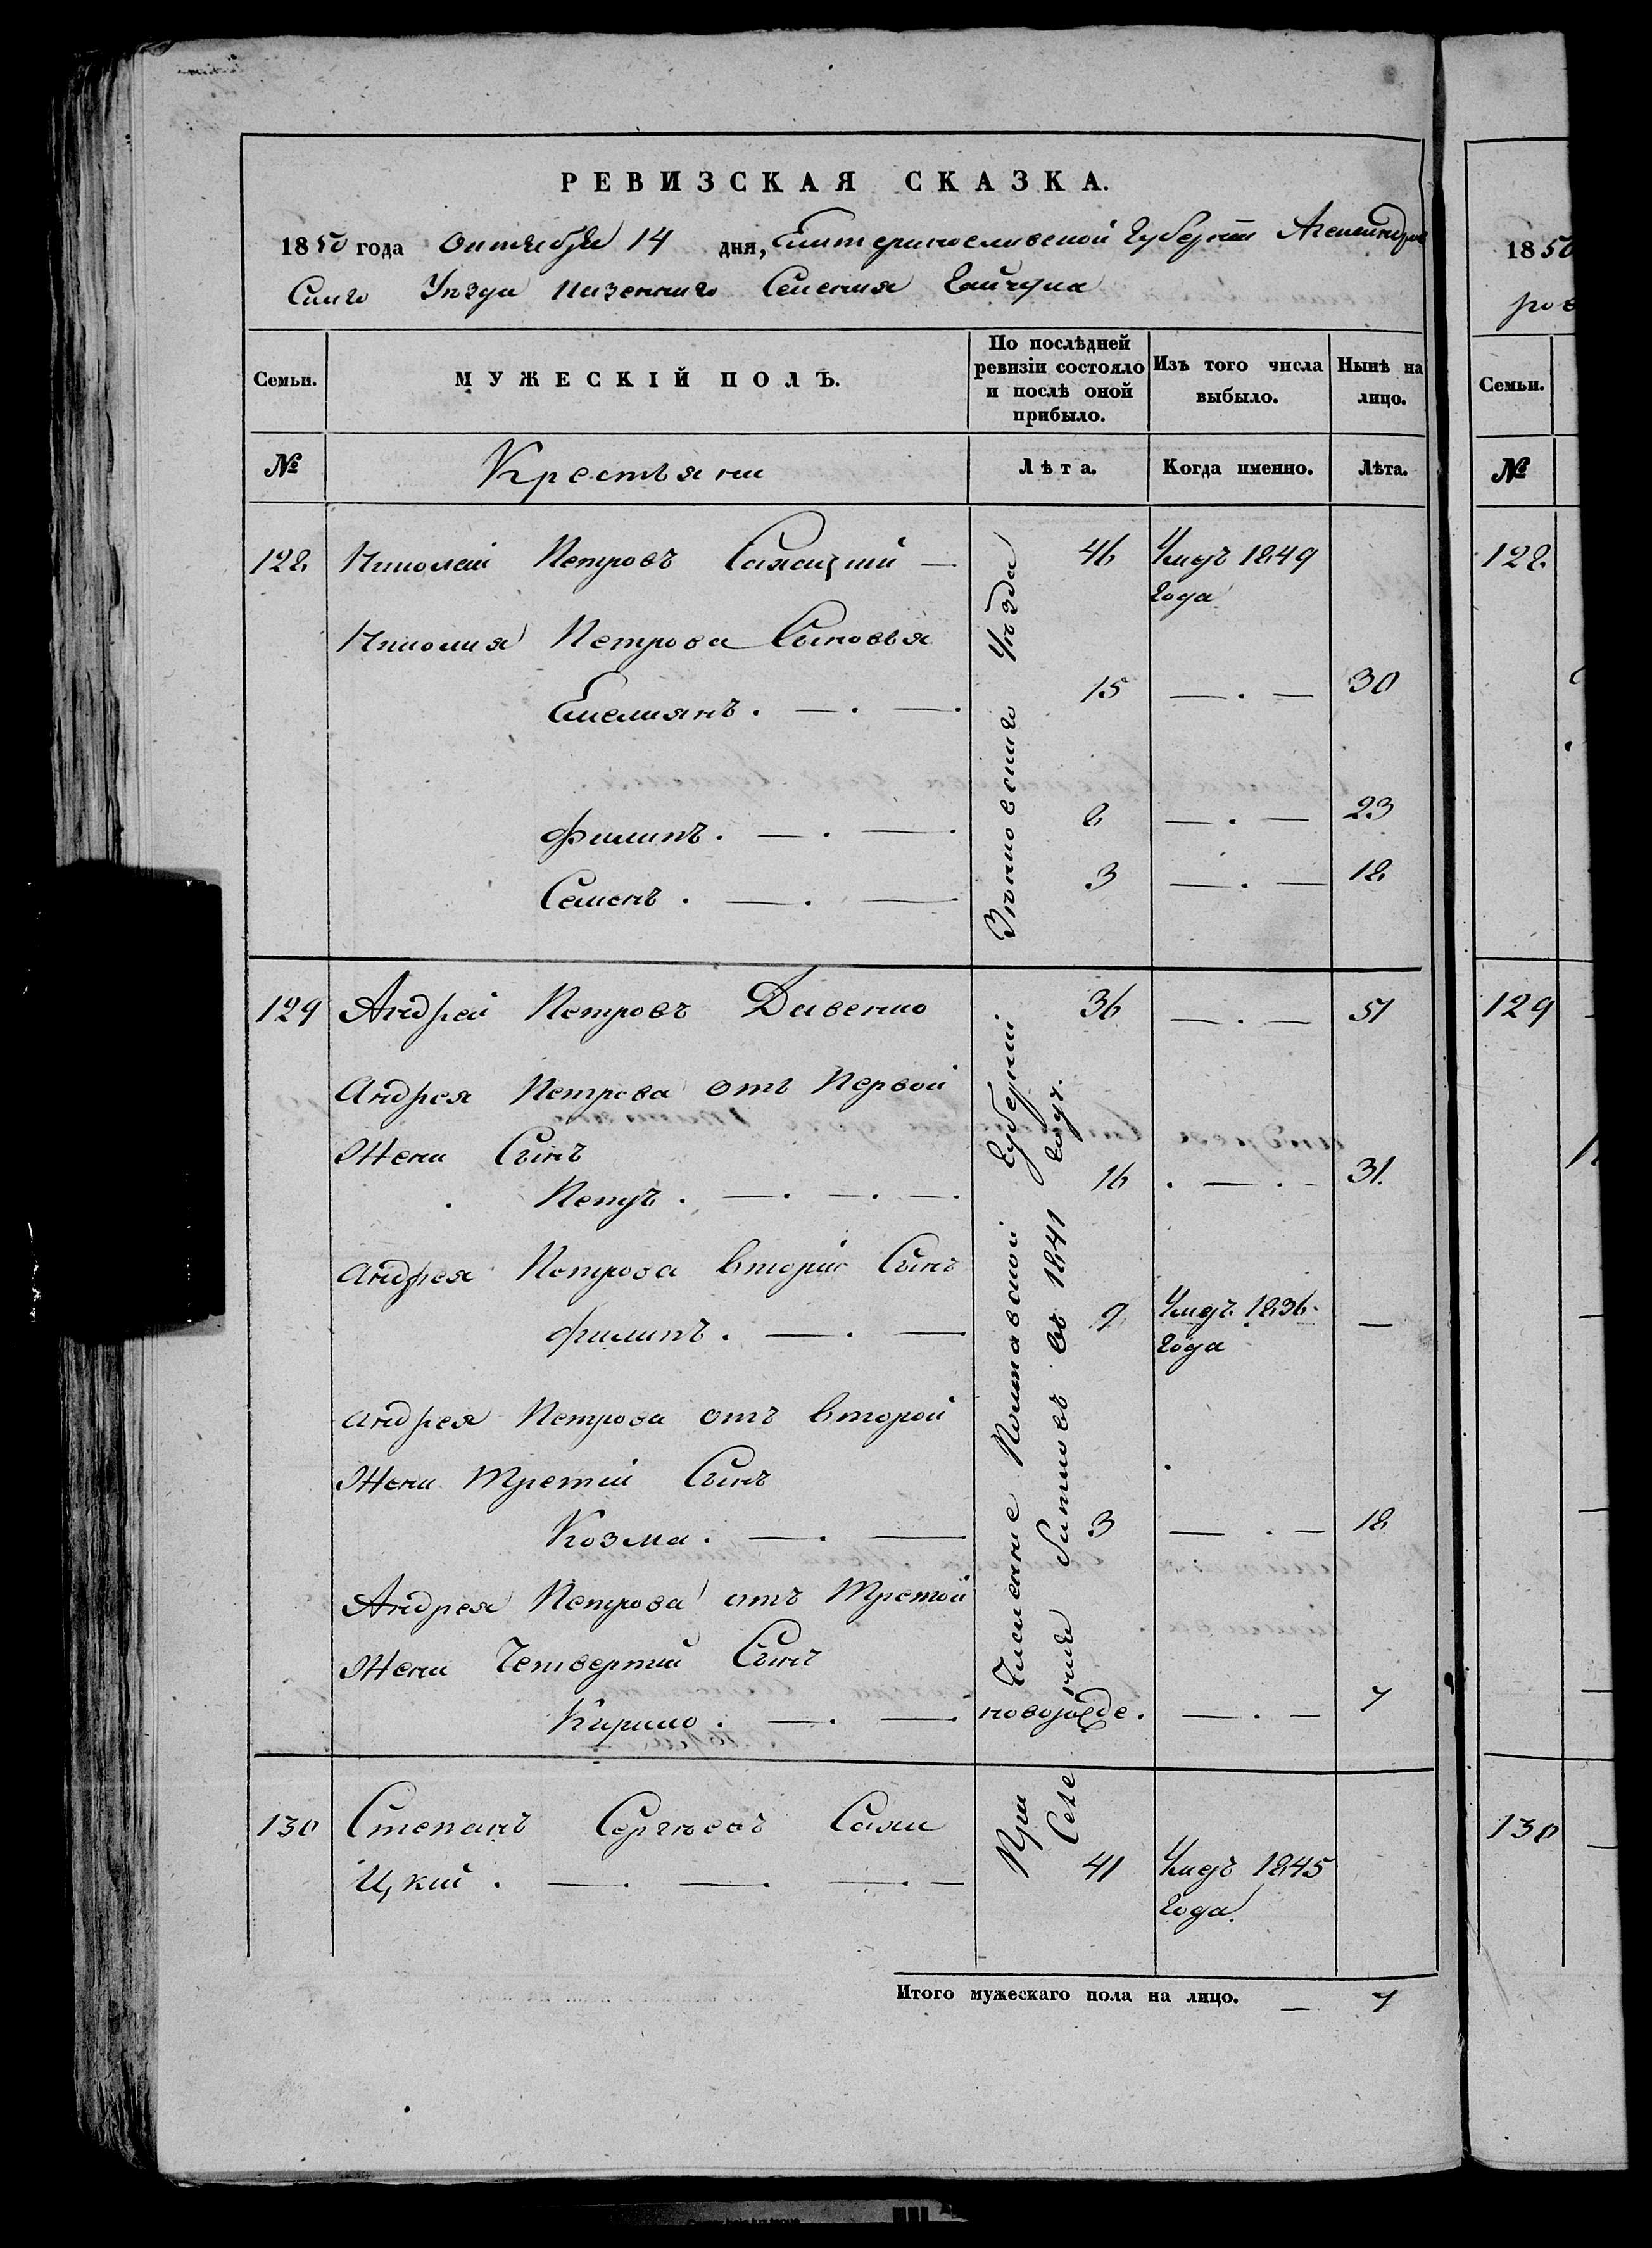 РЕВИЗСКАЯ СКАЗКА.
1850 года Октября 14 дня, Екатеринославской Губернии Александров
Скаго Уезда Казеннаго Селения Гайчула
Семьи.
МУЖЕСКІЙ ПОЛЪ.
По послѣдней ревизіи состояло и послѣ оной прибыло.
Изъ того числа выбыло.
Нынѣ на лицо.
№
Крестьяни
Лѣта.
Когда именно.
Лѣта.
128 Николай Петровъ 46 Умеръ 1849
года
Николая Петрова Сыновья
Емелиянъ . — . — . 15 — . — 30
Филипъ . — . — . 8 — . — 23
Семенъ . — . — 3 — . — 18
129 Андрей Петровъ Давенко 36 — . — 51
Андрея Петрова отъ Первой
Жени Сынъ
Петръ . — . — . — . 16 . — . - 31.
Андрея Петрова вторый Сынъ
Филипъ . — . — 9 Умеръ 1836
года —
Андрея Петрова отъ второй
Жени Третій Сынъ
Козма . — . — 3 — . — 18
Андрея Петрова отъ Третой
Жени Четвертый Сынъ
Кирило . — . — . новорожде. — . — 7
130 Степанъ Сергѣевъ
цкий . — . — . — . — 41 Умеръ 1845
года
При Полтавской Губерніи Зѣньковскаго Уѣзда
Селе въ 1841 году.
Итого мужескаго пола на лицо. — 7
1850
Семьи.
№
128
129
130